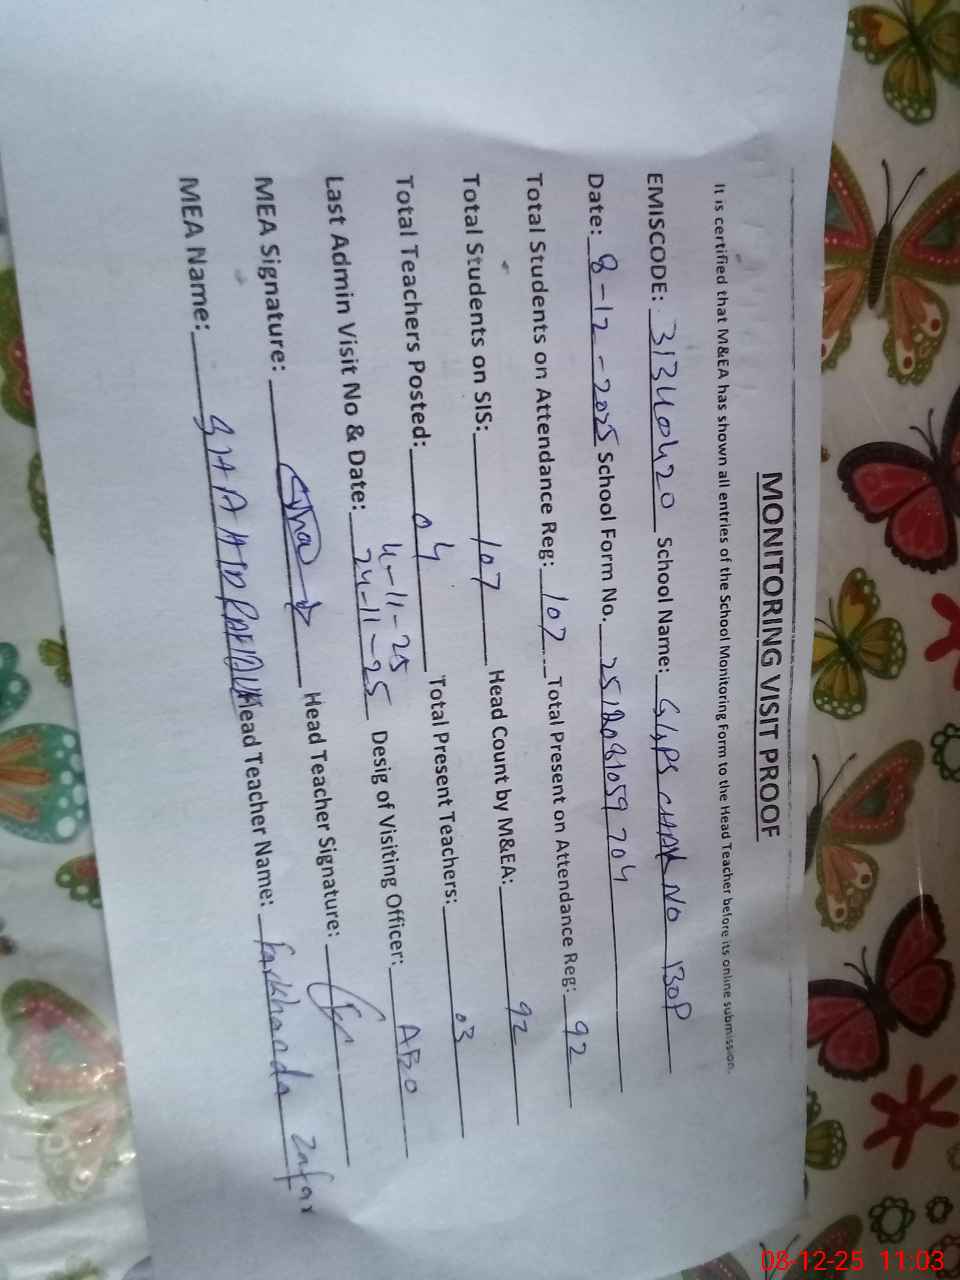 MONITORING VISIT PROOF
It is certified that M&EA has shown all entries of the School Monitoring Form to the Head Teacher before its online submission.
EMISCODE: 31340420 School Name: GGPS CHAK NO 130P
Date: 8-12-2025 School Form No. 
Total Students on Attendance Reg: 107 Total Present on Attendance Reg: 92
Total Students on SIS: 107 Head Count by M&EA: 92
Total Teachers Posted: 04 Total Present Teachers: 03
4-11-25
Last Admin Visit No & Date: 24-11-25 Desig of Visiting Officer: AEO
MEA Signature: Head Teacher Signature:
MEA Name: Head Teacher Name: Farkhanda Zafar
08-12-25 11:03